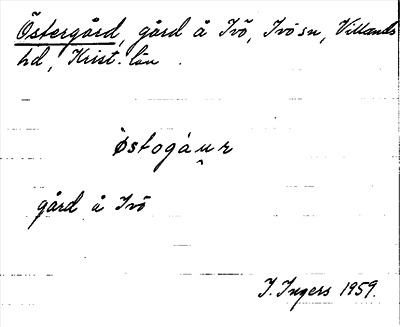 Östergård, gård å Ivö, Ivösn, Villands
hd, Krist. län.
östogáu̯r
gård å Ivö
I. Ingers 1959.